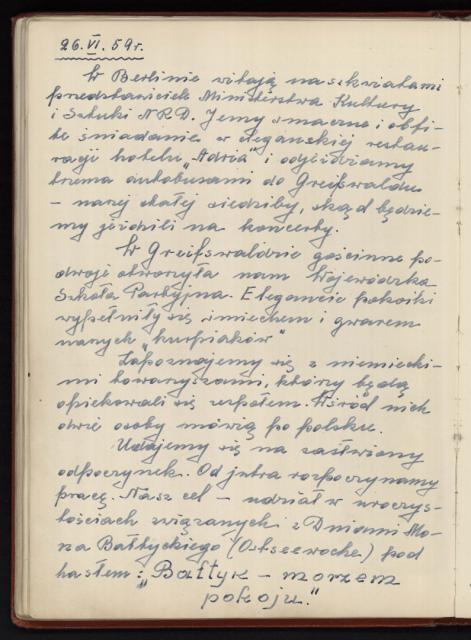 26.VI.59r.
W Berlinie witają nas kwiatami
przedstawiciele Ministerstwa Kultury
i Sztuki NRD. Jemy smaczne i obfi-
te śniadanie w eleganckiej restau-
racji hotelu „Adria" i odjeżdżamy
trzema autobusami do Greifswaldu
- naszej stałej siedziby, skąd będzie-
my jeździli na koncerty.
W Greifswaldzie gościnne po-
dwoje otworzyła nam Wojewódzka
Szkoła Partyjna. Eleganckie pokoiki
wypełniły się śmiechem i gwarem
naszych „kurpiaków"
Zapoznajemy się z niemiecki-
mi towarzyszami, którzy będą
opiekowali się zespołem. Wśród nich
dwie osoby mówią po polsku.
Udajemy się na zasłużony
odpoczynek. Od jutra rozpoczynamy
pracę. Nasz cel - udział w uroczys-
tościach związanych z Dniami Mo-
rza Bałtyckiego (Ostseewoche) pod
hasłem: „Bałtyk - morzem
pokoju."